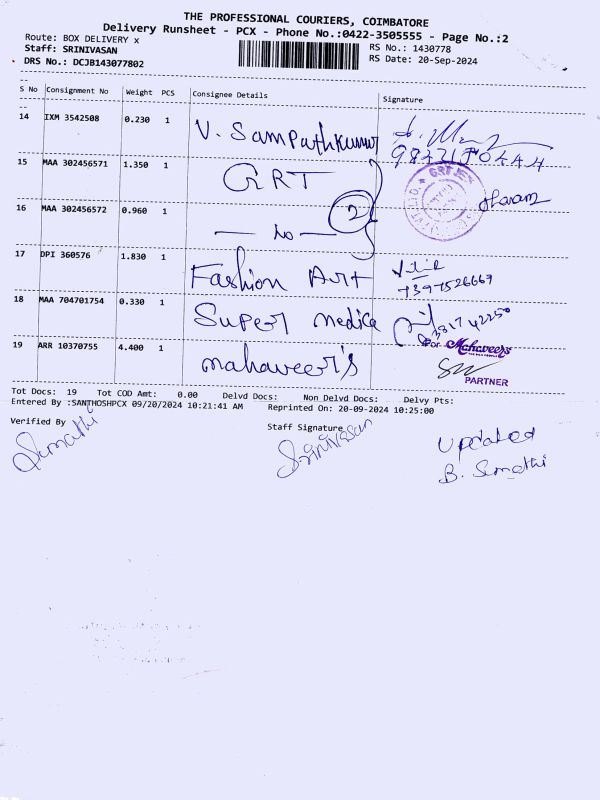 THE PROFESSIONAL COURIERS, COIMBATORE
Delivery Runsheet - PCX - Phone No.:0422-3505555 - Page No.:2
Route: BOX DELIVERY x
RS No.: 1430778
Staff: SRINIVASAN
RS Date: 20-Sep-2024
DRS No.: DCJB143077802
S No Consignment No Weight PCS Consignee Details Signature
14 IXM 3542508 0.230 1 V. Sampathkumar
15 MAA 302456571 1.350 1 GRT
16 MAA 302456572 0.960 1 — Do — 2
17 DPI 360576 1.830 1 Fashion Art
18 MAA 704701754 0.330 1 Super medica
19 ARR 10370755 4.400 1 mahaveer's
For Mahaveers
PARTNER
Tot Docs: 19 Tot COD Amt: 0.00 Delvd Docs: Non Delvd Docs: Delvy Pts:
Entered By :SANTHOSHPCX 09/20/2024 10:21:41 AM Reprinted On: 20-09-2024 10:25:00
Verified By Staff Signature
Sumathi Srinivasan Updated
B. Sumathi